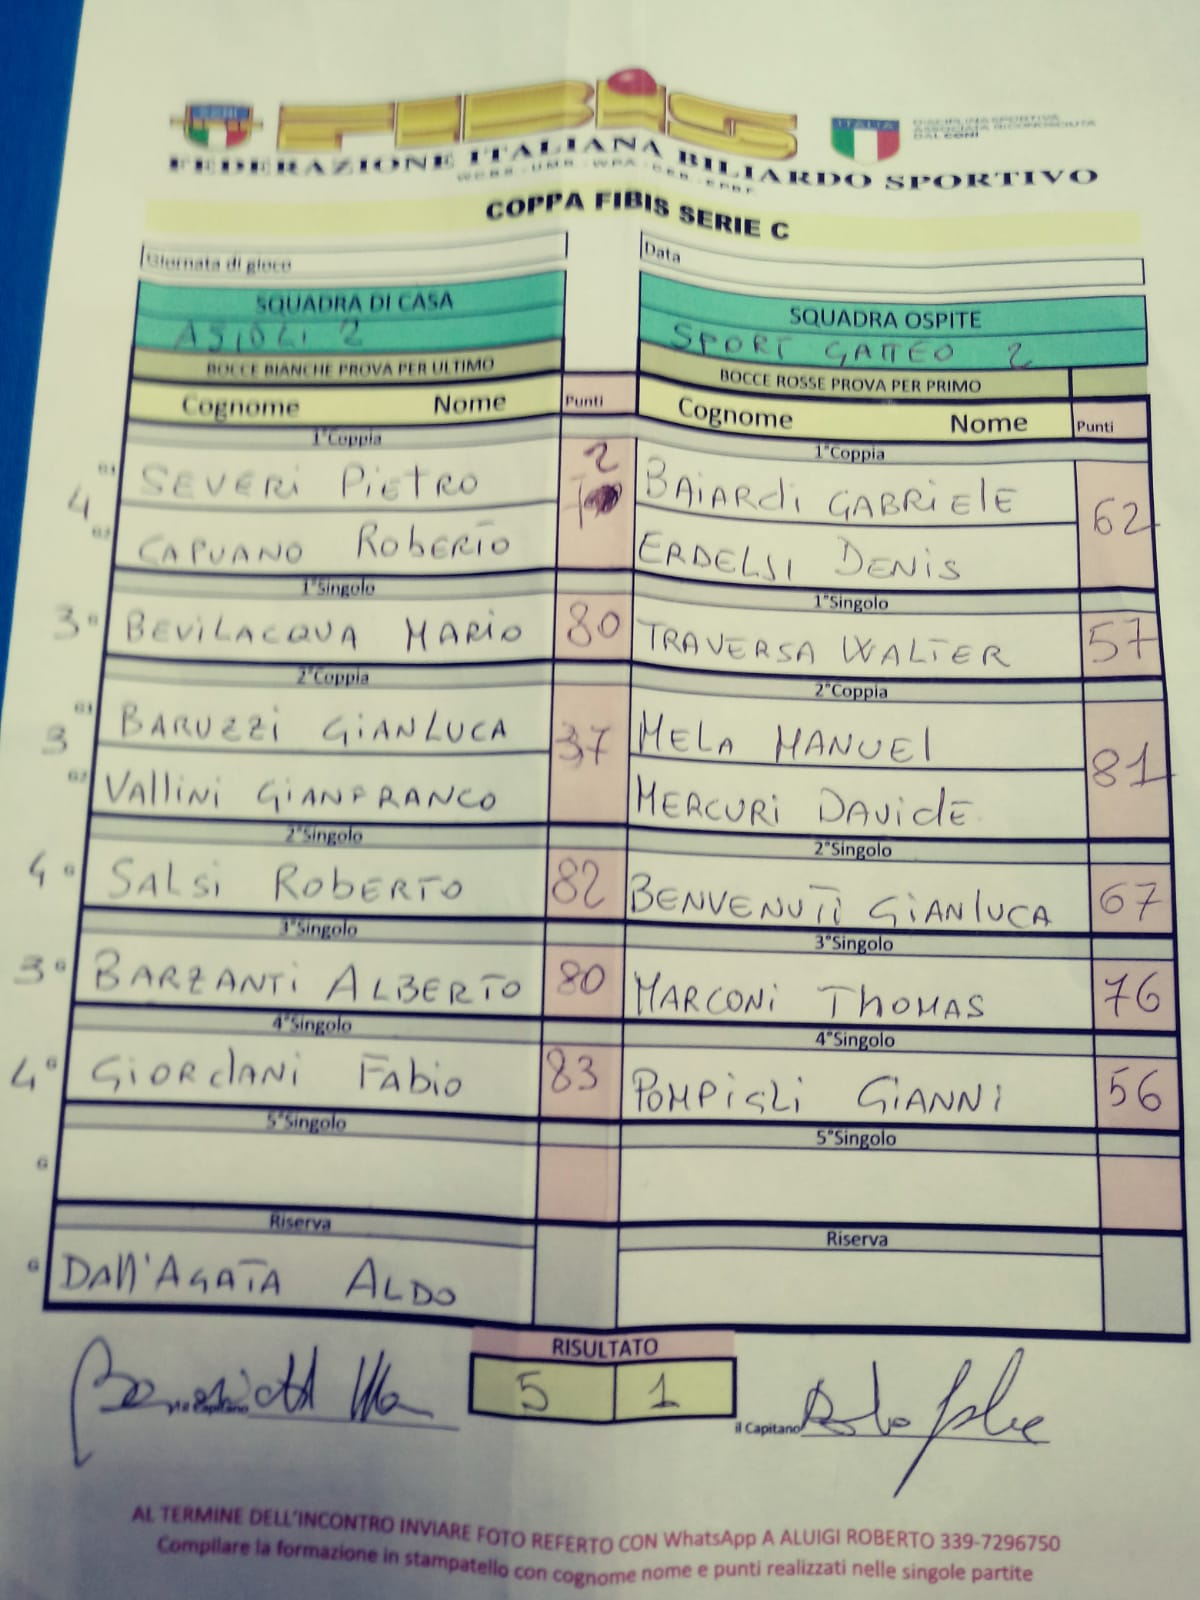 SEMI
FIBiS
ITALIA
DISCIPLINA SPORTIVA
ASSOCIATA RICONOSCIUTA
DAL CONI
FEDERAZIONE ITALIANA BILIARDO SPORTIVO
COPPA FIBIS SERIE C
Giornata di gioco
Data
SQUADRA DI CASA
SQUADRA OSPITE
ASIOLI 2
SPORT GATTEO 2
BOCCE BIANCHE PROVA PER ULTIMO
BOCCE ROSSE PROVA PER PRIMO
Cognome Nome Punti
Cognome Nome Punti
1°Coppia
1°Coppia
G1 SEVERI PIETRO 2 BAIARDI GABRIELE 62
4
G2 CAPUANO ROBERTO ERDELSI DENIS
1°Singolo
1°Singolo
3 G BEVILACQUA MARIO 80 TRAVERSA WALTER 57
2°Coppia
2°Coppia
G1 BARUZZI GIANLUCA 37 MELA MANUEL 81
3
G2 VALLINI GIANFRANCO MERCURI DAVIDE
2°Singolo
2°Singolo
4 G SALSI ROBERTO 82 BENVENUTI GIANLUCA 67
3°Singolo
3°Singolo
3 G BARZANTI ALBERTO 80 MARCONI THOMAS 76
4°Singolo
4°Singolo
4 G GIORDANI FABIO 83 POMPIGLI GIANNI 56
5°Singolo
5°Singolo
G
Riserva
Riserva
G DALL'AGATA ALDO
RISULTATO
5 1
il Capitano
AL TERMINE DELL'INCONTRO INVIARE FOTO REFERTO CON WhatsApp A ALUIGI ROBERTO 339-7296750
Compilare la formazione in stampatello con cognome nome e punti realizzati nelle singole partite